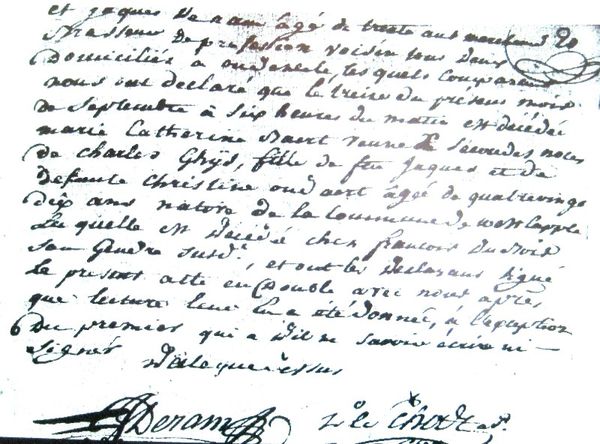 et jaques Deram âgé de trente ans marchand
Brasseur De profession voisin tous deux
Domiciliés a oudezeele, lesquels Comparans
nous ont declaré que le treize du présent mois
de Septembre à Six heures du matin est décédée
marie Catherine Baert veuve de Secondes noces
de Charles Ghys, fille de feu Jaques et de
defunte Christine âgée de quatrevingt
Dix ans native de la Commune de
Laquelle est Décédé chez francois
Son Gendre susd.t, et ont les Declarans signé
le present acte en Double avec nous après
que lecture leur en a été donnée, à l'exception
Du premier qui a dit ne savoir écrire ni
Signer Date que dessus
Deram